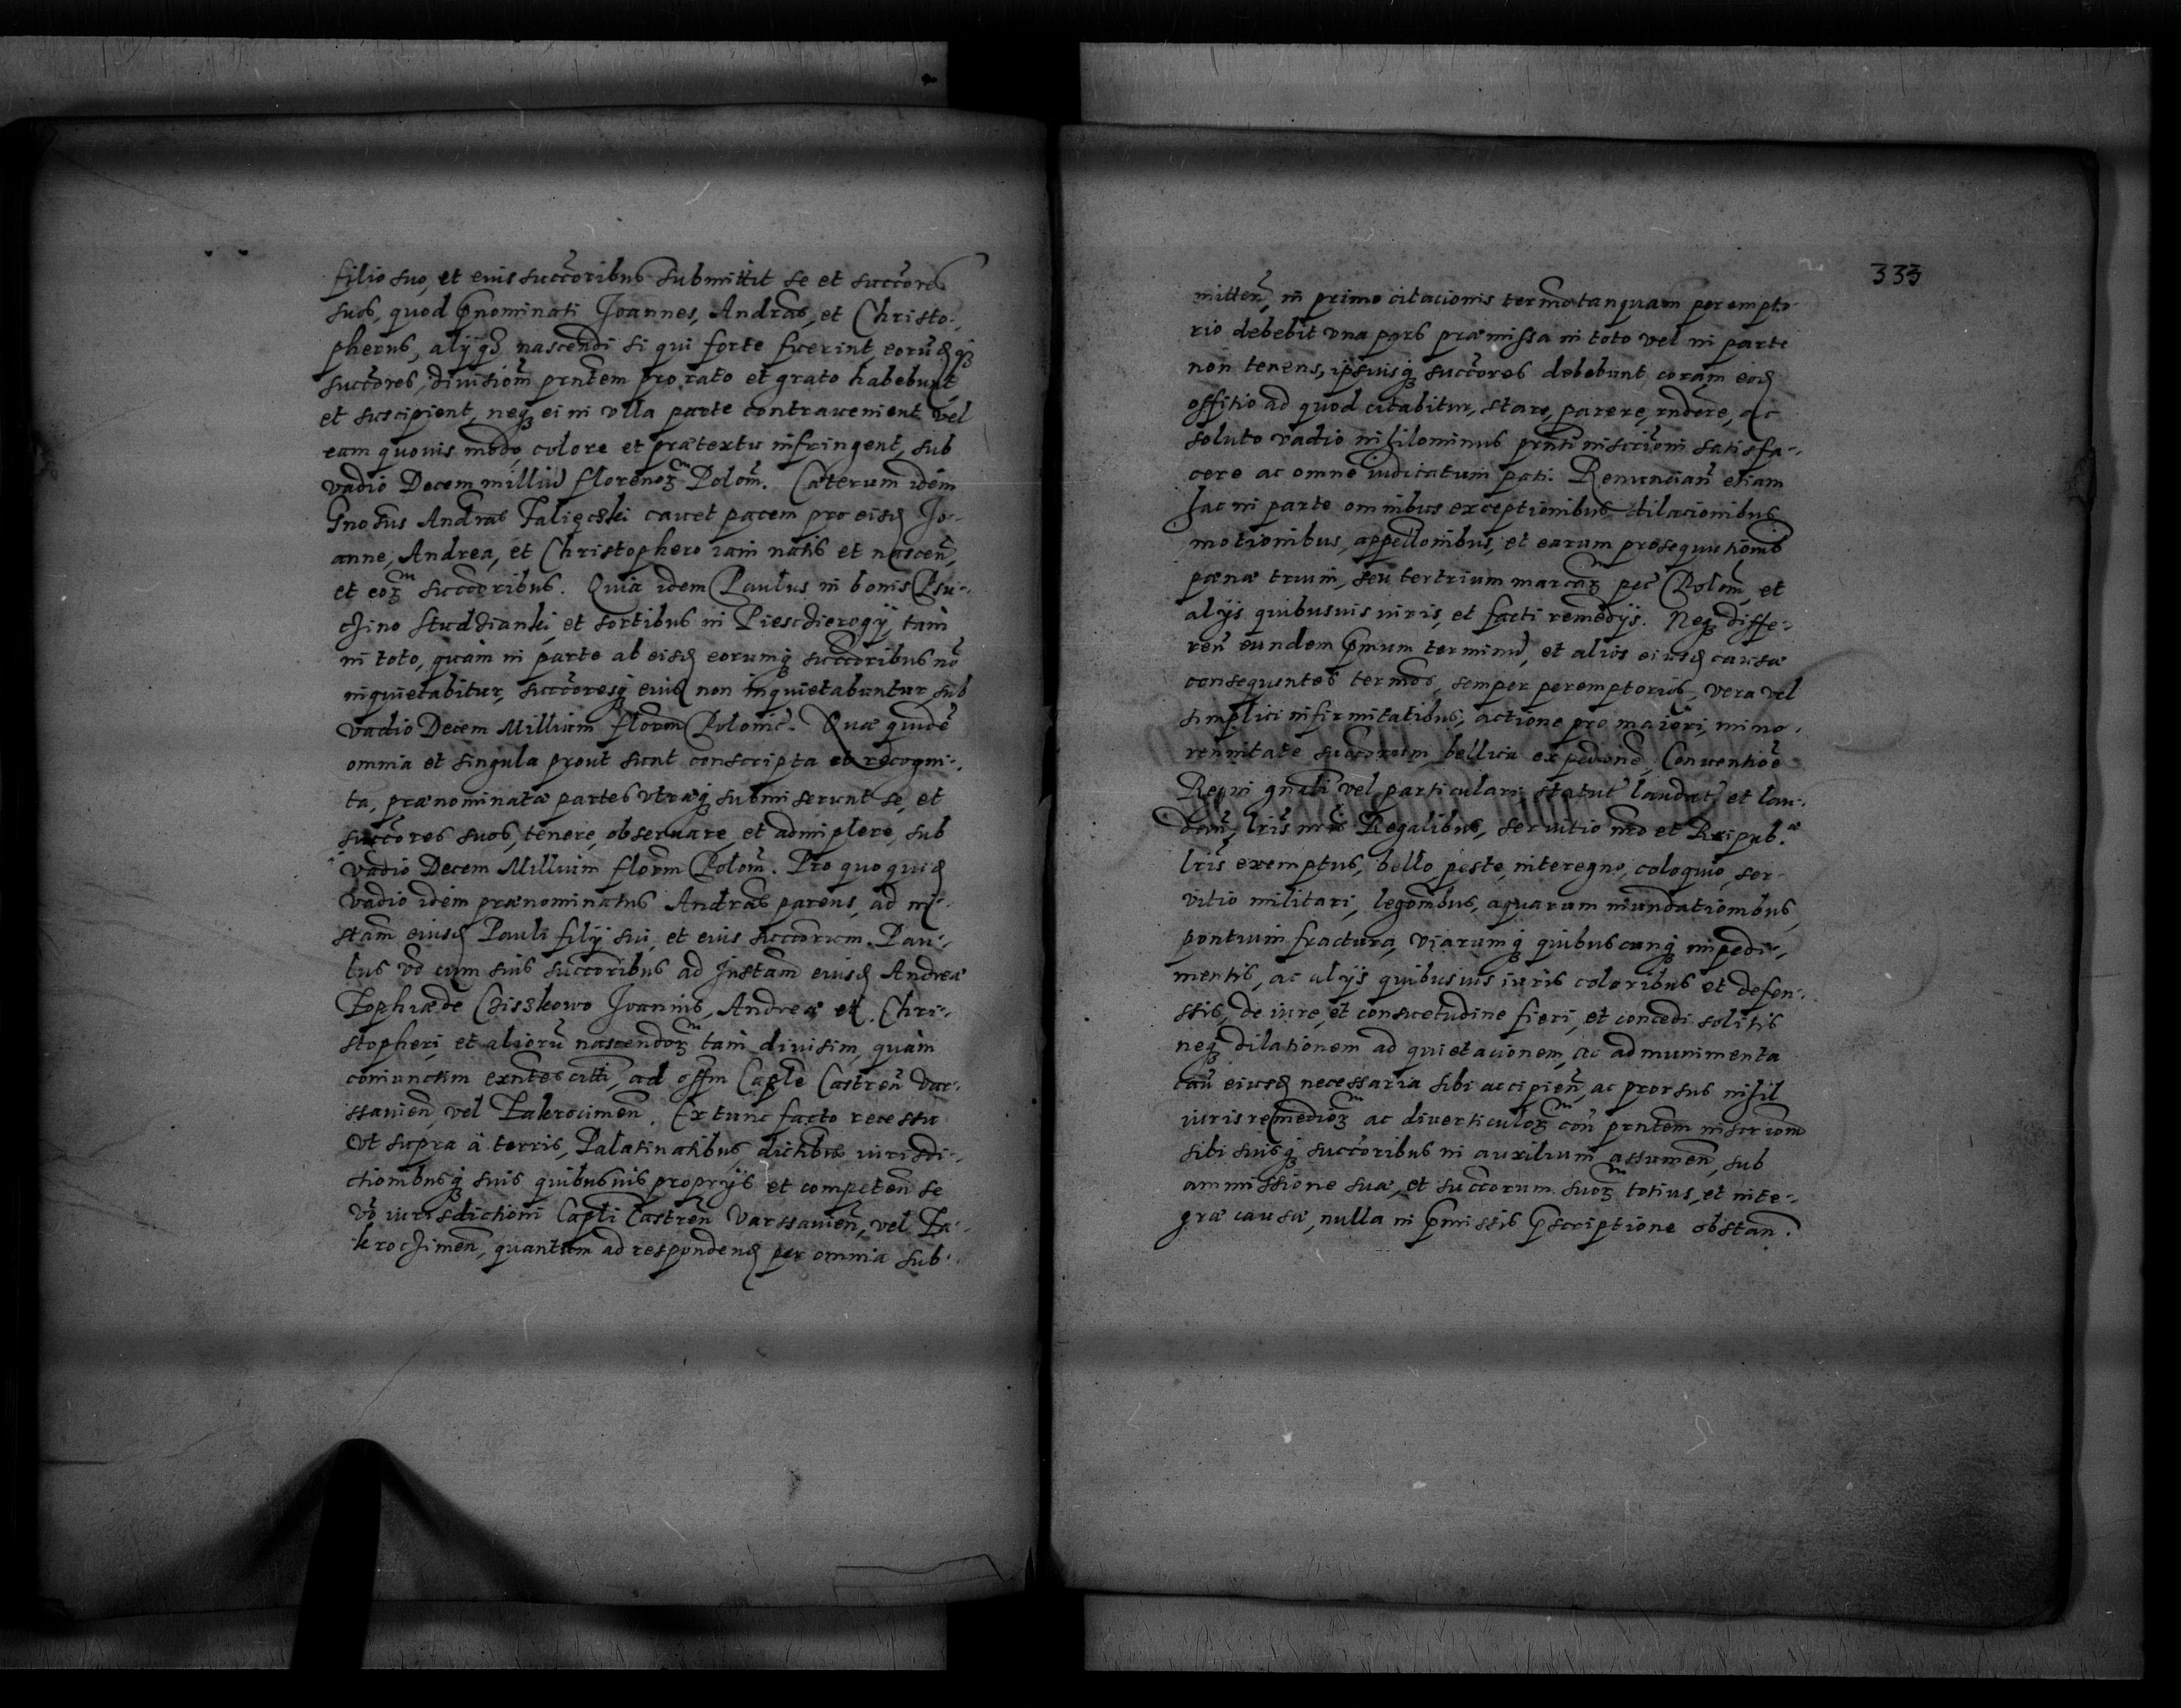 filio suo, et eius succoribus submittit se et succores
suos, quod pnominati Joannes, Andreas, et Christo-
pherus, alijq3 nascendi si qui forte fuerint, eorudq3
succores, divisiom prntem pro rato et grato habebunt,
et suscipient, neq3 ei in vlla parte contravenient vel
eam quovis modo, colore et prætextu infringent, sub
vadio Decem milliu florenor Polom. Cæterum idem
Gnosus Andreas Falięcki cavet pacem pro eisd Jo-
anne, Andrea, et Christophero iam natis et nascen,
et eor succoribus. Quia idem Paulus in bonis Psu-
czino Studdianki, et sortibus in Piescdierogij, tam
in toto, quam in parte ab eisd eorumq3 succoribus no
inquietabitur, succoresq3 eius non inquietabuntur, sub
vadio Decem Millium florm Polonic. Quæ quide
omnia et singula prout sunt conscripta et recogni-
ta, prænominatæ partes vtræq3 submiserunt se, et
succores suos, tenere, observare, et adimplere, sub
vadio Decem Millium florm Polom. Pro quo quid
vadio idem prænominatus Andreas parens, ad in-
stam eiusd Pauli filij sui, et eius succorum. Pau-
lus vo cum suis succoribus ad Instam eiusd Andreæ
Zophiæ de Cziskowo Joannis, Andreæ et Chri-
stopheri, et alioru nascendor tam divisim, quam
coniunctim exntes citti, ad offm Caple Castren Var-
ssavien, vel Zakrocimen. Ex tunc facto recessu
vt supra a terris, Palatinatibus, dictibus iurisdi-
ctionibusq3 suis quibusvis proprijs et competen se
vo iurisdictioni Capli Castren Varssavien, vel Za-
kroczimen, quantum ad respondend per omnia sub-
333
mitten, in primo citacionis termo tanquam perempto-
rio debebit vna pars præmissa in toto vel in parte
non tenens, ipsiusq3 succores debebunt coram eod
offitio ad quod citabitur, stare, parere, rndere, ac
soluto vadio nihilominus prnti inscrioni satisfa-
cere ac omne iudicatum pati. Renuncian etiam
hac in parte omnibus exceptionibus dilacionibus
motionibus, appellonibus, et earum prosequutionib
pænæ trium, seu tertrium marcar pec Polom, et
alijs quibusvis iuris, et facti remedijs. Neq3 diffe-
ren eundem pmum terminu, et alios eiusd causæ
consequentes termos, semper peremptorios, vera vel
simplici infirmitatibus, actione pro maiori, mino-
rennitate succorum bellica expedione, Conventioe
Regni gnali vel particulari statut laudat et lau-
dan, lris nris Regalibus, servitio nro et Reipub.æ
lris exemptus, bello, peste, interegno, coloquio, ser-
vitio militari, legonibus, aquarum inundationibus,
pontium fractura, viarumq3 quibuscunq3 impedi-
mentis, ac alijs quibusvis iuris coloribus et defen-
ssis, de iure, et consuetudine fieri, et concedi solitis
neq3 dilationem ad quietacionem, ac ad munimenta
cau eiusd necessaria sibi accipien, ac prorsus nihil
iuris remedior ac diverticulor con prntem inscriom
sibi suisq3 succoribus in auxilium assumen, sub
ammissione suæ, et succorum suor totius, et inte-
græ causæ, nulla in pmissis pscriptione obstan.